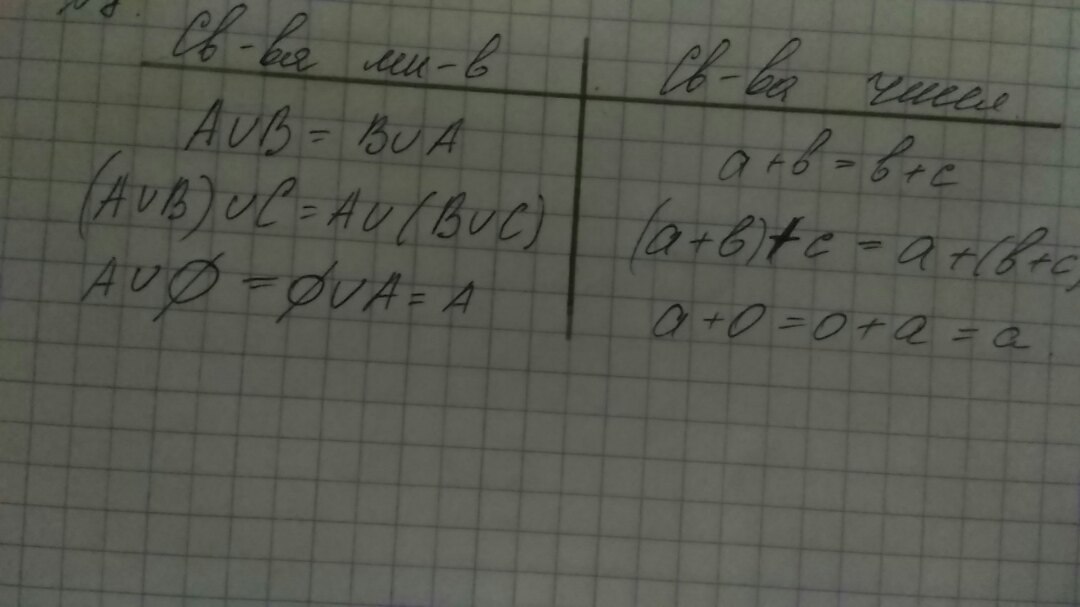 Св-вя мн-в
Св-ва чисел
A∪B = B∪A
a+в=в+c
(A∪B)∪C=A∪(B∪C)
(a+в)+c = a+(в+c)
A∪∅ = ∅∪A = A
a+0=0+a=a.